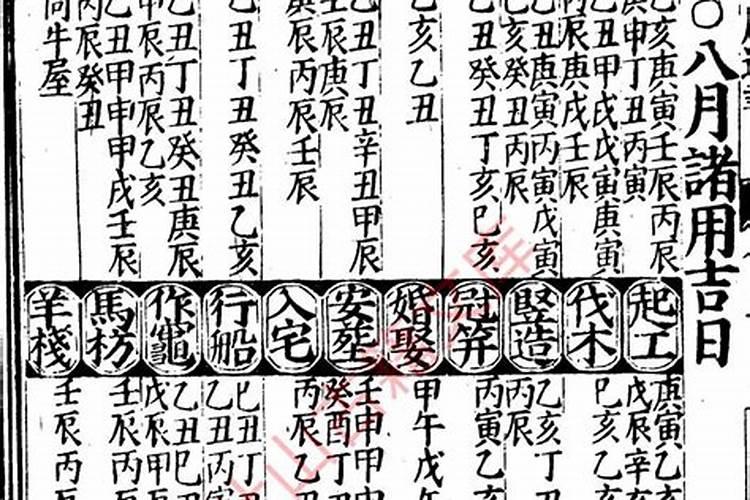 〇八月諸用吉日
乙亥庚寅壬辰丙辰
庚申丁丑丙寅
起工
庚寅乙
戊辰辛
乙丑甲戌戊寅庚寅
丙辰庚戌壬辰
伐木
巳亥乙
乙丑庚寅丙寅戊寅
乙亥癸丑丙辰
竪造
乙亥丁
丙辰
乙丑癸丑丁亥巳亥
冠笄
丙寅乙亥
乙亥乙丑
婚娶
甲午戊午
乙丑丁丑辛丑甲辰
壬辰庚辰
安葬
壬申甲申
癸酉丁
庚辰丙辰壬辰
入宅
丙辰乙
乙丑丁丑癸丑乙亥
行船
巳丑丁
乙丑丙寅
乙丑丁丑癸丑庚辰
甲辰丙辰乙亥
作竈
乙丑巳
戊辰甲
乙丑甲申甲戌壬辰
丙辰癸丑
馬枋
壬辰丙
同牛屋
羊棧
壬辰丙